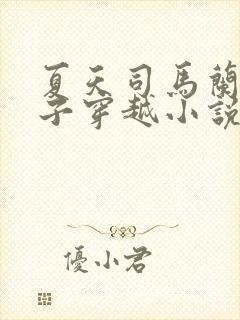 夏天司馬蘭
子穿越小說
優小君